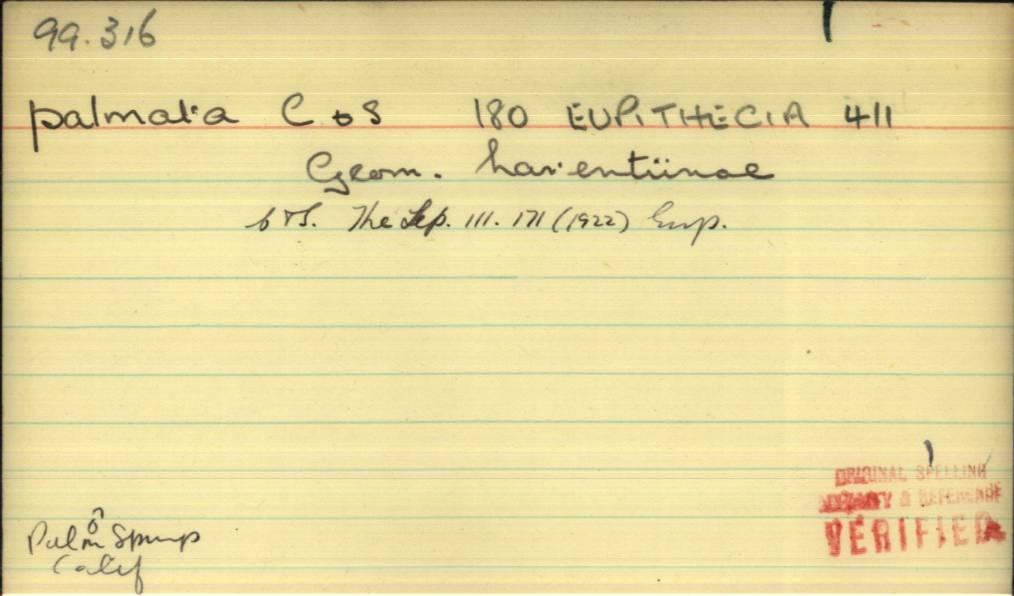 99.316
palmata C & S 180 EUPITHECIA 411
Geom. Larentiinae
C & S. The Lep. III. 171 (1922) Eup.
ORIGINAL SPELLING
& REFERENCE
VERIFIED
♂
Palm Springs
Calif